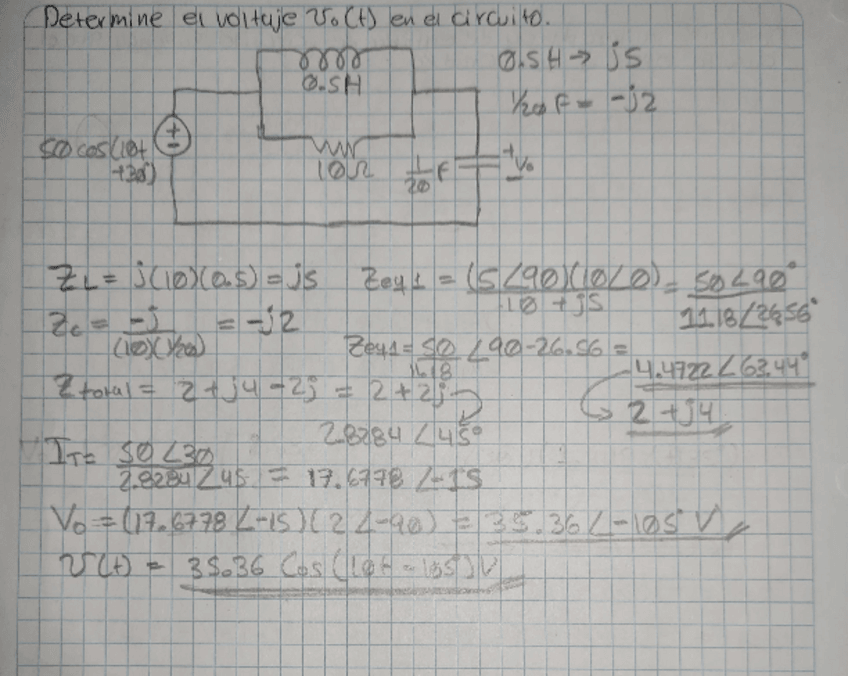 Determine el voltaje v₀(t) en el circuito.
0.5H → j5
0.5H
1/20 F = -j2
50 cos(10t
+30)
10Ω
1/20 F
+
V₀
-
Z_L = j(10)(0.5) = j5
Zeq1 = (5∠90)(10∠0) / 10 + j5 = 50∠90° / 11.18∠26.56°
Z_c = -j / (10)(1/20) = -j2
Zeq1 = 50 / 11.18 ∠90-26.56 =
4.4722∠63.44°
Ztotal = 2+j4-2j = 2+2j
2+j4
2.8284∠45°
I_T = 50∠30 / 2.8284∠45 = 17.6778∠-15
V₀ = (17.6778∠-15)(2∠-90) = 35.36∠-105° V
v(t) = 35.36 Cos(10t-105)V